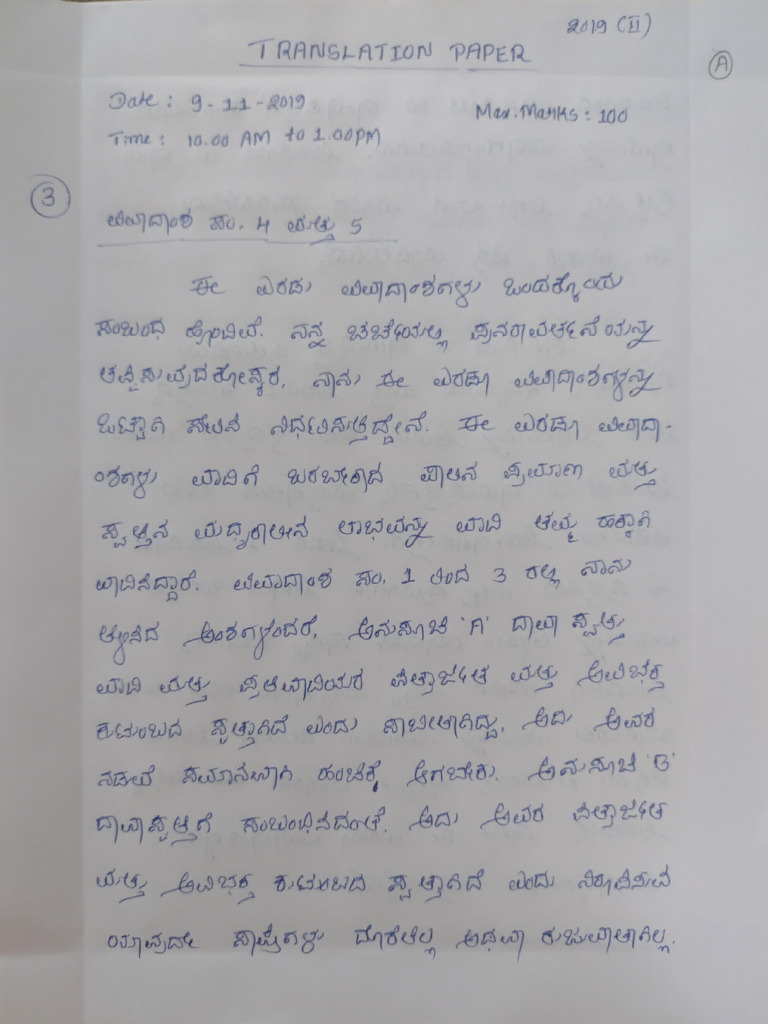 2019 (II)
TRANSLATION PAPER
A
Date : 9-11-2019
Max.Marks : 100
Time : 10.00 AM to 1.00PM
3
ವಿವಾದಾಂಶ ಸಂ. 4 ಮತ್ತು 5
ಈ ಎರಡು ವಿವಾದಾಂಶಗಳು ಒಂದಕ್ಕೊಂದು
ಸಂಬಂಧ ಹೊಂದಿವೆ. ನನ್ನ ಚರ್ಚೆಯಲ್ಲಿ ಪುನರಾವರ್ತನೆಯನ್ನು
ತಪ್ಪಿಸುವುದಕ್ಕೋಸ್ಕರ, ನಾನು ಈ ಎರಡೂ ವಿವಾದಾಂಶಗಳನ್ನು
ಒಟ್ಟಾಗಿ ನಿರ್ಧರಿಸುತ್ತಿದ್ದೇನೆ. ಈ ಎರಡೂ ವಿವಾದಾ-
ಂಶಗಳು ವಾದಿಗೆ ಬರಬೇಕಾದ ಪಾಲಿನ ಪ್ರಮಾಣ ಮತ್ತು
ಸ್ವತ್ತಿನ ಮಧ್ಯಕಾಲೀನ ಲಾಭವನ್ನು ವಾದಿ ತಮ್ಮ ಹಕ್ಕಾಗಿ
ವಾದಿಸಿದ್ದಾರೆ. ವಿವಾದಾಂಶ ಸಂ. 1 ರಿಂದ 3 ರಲ್ಲಿ ನಾನು
ತಿಳಿಸಿದ ಅಂಶಗಳೆಂದರೆ, ಅನುಸೂಚಿ 'A' ದಾವಾ ಸ್ವತ್ತು
ವಾದಿ ಮತ್ತು ಪ್ರತಿವಾದಿಯರ ಪಿತ್ರಾರ್ಜಿತ ಮತ್ತು ಅವಿಭಕ್ತ
ಕುಟುಂಬದ ಸ್ವತ್ತಾಗಿದೆ ಎಂದು ಸಾಬೀತಾಗಿದ್ದು, ಅದು ಅವರ
ನಡುವೆ ಸಮಾನವಾಗಿ ಹಂಚಿಕೆ ಆಗಬೇಕು. ಅನುಸೂಚಿ 'B'
ದಾವಾಸ್ವತ್ತಿಗೆ ಸಂಬಂಧಿಸಿದಂತೆ, ಅದು ಅವರ ಪಿತ್ರಾರ್ಜಿತ
ಮತ್ತು ಅವಿಭಕ್ತ ಕುಟುಂಬದ ಸ್ವತ್ತಾಗಿದೆ ಎಂದು ನಿರೂಪಿಸುವ
ಯಾವುದೇ ಸಾಕ್ಷ್ಯಗಳು ದೊರೆತಿಲ್ಲ ಅಥವಾ ರುಜುವಾತಾಗಿಲ್ಲ.